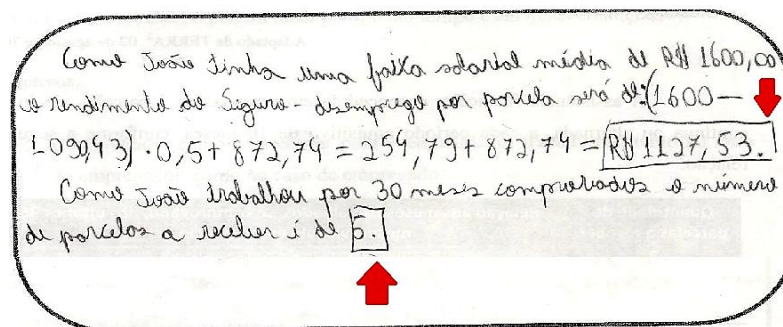 Como João tinha uma faixa salarial média de R$ 1600,00
o rendimento do Seguro-desemprego por parcela será de: (1600 —
1090,43) · 0,5 + 872,74 = 254,79 + 872,74 = R$ 1127,53.
Como João trabalhou por 30 meses comprovados o número
de parcelas a receber é de 5.